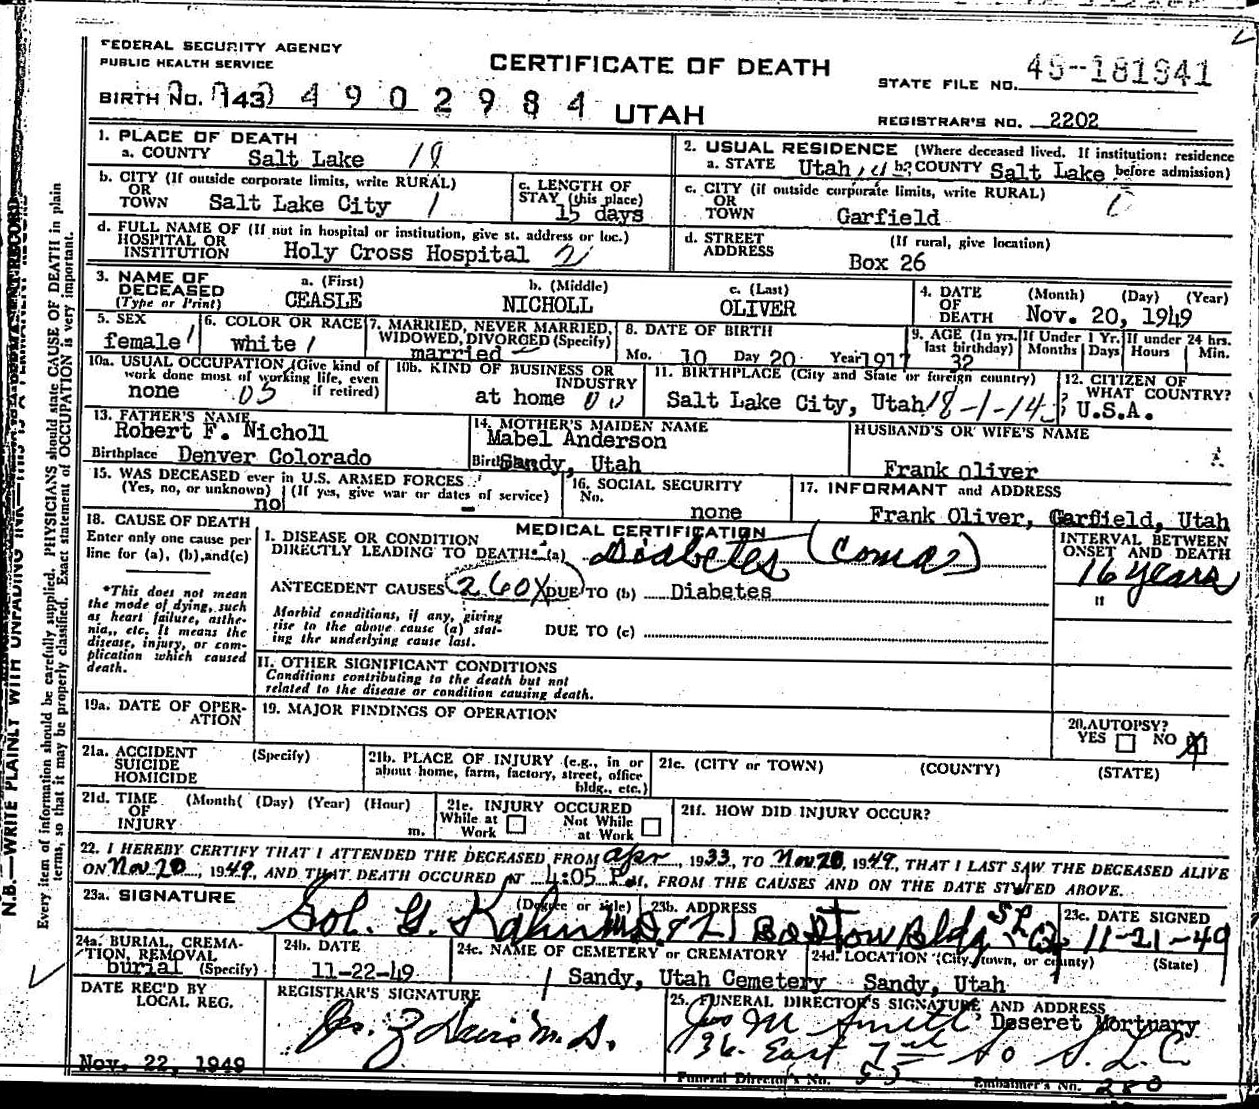 FEDERAL SECURITY AGENCY
PUBLIC HEALTH SERVICE
CERTIFICATE OF DEATH
STATE FILE NO. 49--181941
BIRTH NO. 143 4902984
UTAH
REGISTRAR'S NO. 2202
1. PLACE OF DEATH
a. COUNTY Salt Lake 18
2. USUAL RESIDENCE (Where deceased lived. If institution: residence before admission)
a. STATE Utah b. COUNTY Salt Lake
b. CITY (If outside corporate limits, write RURAL)
OR
TOWN Salt Lake City 1
c. LENGTH OF
STAY (this place)
15 days
c. CITY (if outside corporate limits, write RURAL)
OR
TOWN Garfield
d. FULL NAME OF (If not in hospital or institution, give st. address or loc.)
HOSPITAL OR
INSTITUTION Holy Cross Hospital
d. STREET (If rural, give location)
ADDRESS Box 26
3. NAME OF
DECEASED
(Type or Print)
a. (First) b. (Middle) c. (Last)
CEASLE NICHOLL OLIVER
4. DATE (Month) (Day) (Year)
OF
DEATH Nov. 20, 1949
5. SEX
female 1
6. COLOR OR RACE
white 1
7. MARRIED, NEVER MARRIED,
WIDOWED, DIVORCED (Specify)
married
8. DATE OF BIRTH
Mo. 10 Day 20 Year 1917
9. AGE (In yrs. last birthday) 32
If Under 1 Yr. Months Days
If under 24 hrs. Hours Min.
10a. USUAL OCCUPATION (Give kind of
work done most of working life, even
if retired)
none 05
10b. KIND OF BUSINESS OR
INDUSTRY
at home
11. BIRTHPLACE (City and State or foreign country)
Salt Lake City, Utah 18-1-143
12. CITIZEN OF
WHAT COUNTRY?
U.S.A.
13. FATHER'S NAME
Robert F. Nicholl
Birthplace Denver Colorado
14. MOTHER'S MAIDEN NAME
Mabel Anderson
Sandy, Utah
HUSBAND'S OR WIFE'S NAME
Frank Oliver
15. WAS DECEASED ever in U.S. ARMED FORCES
(Yes, no, or unknown) (If yes, give war or dates of service)
no -
16. SOCIAL SECURITY
No.
none
17. INFORMANT and ADDRESS
Frank Oliver, Garfield, Utah
18. CAUSE OF DEATH
Enter only one cause per
line for (a), (b), and (c)
*This does not mean
the mode of dying, such
as heart failure, asthe-
nia, etc. It means the
disease, injury, or com-
plication which caused
death.
MEDICAL CERTIFICATION
I. DISEASE OR CONDITION
DIRECTLY LEADING TO DEATH: (a) Diabetes (coma?)
INTERVAL BETWEEN
ONSET AND DEATH
16 years
ANTECEDENT CAUSES 260X DUE TO (b) Diabetes "
Morbid conditions, if any, giving
rise to the above cause (a) stat-
ing the underlying cause last.
DUE TO (c)
II. OTHER SIGNIFICANT CONDITIONS
Conditions contributing to the death but not
related to the disease or condition causing death.
19a. DATE OF OPER-
ATION
19. MAJOR FINDINGS OF OPERATION
20. AUTOPSY?
YES NO X
21a. ACCIDENT (Specify)
SUICIDE
HOMICIDE
21b. PLACE OF INJURY (e.g., in or
about home, farm, factory, street, office
bldg., etc.)
21c. (CITY or TOWN) (COUNTY) (STATE)
21d. TIME (Month) (Day) (Year) (Hour)
OF
INJURY m.
21e. INJURY OCCURED
While at Work Not While at Work
21f. HOW DID INJURY OCCUR?
22. I HEREBY CERTIFY THAT I ATTENDED THE DECEASED FROM Apr, 1933, TO Nov. 20, 1949, THAT I LAST SAW THE DECEASED ALIVE
ON Nov 20, 1949, AND THAT DEATH OCCURED AT 4:05 P.M, FROM THE CAUSES AND ON THE DATE STATED ABOVE.
23a. SIGNATURE (Degree or title)
Sol. G. Kahn M.D.
23b. ADDRESS
Boston Bldg SL City
23c. DATE SIGNED
11-21-49
24a. BURIAL, CREMA-
TION, REMOVAL
burial (Specify)
24b. DATE
11-22-49
24c. NAME OF CEMETERY or CREMATORY
1 Sandy, Utah Cemetery
24d. LOCATION (City, town, or county) (State)
Sandy, Utah
DATE REC'D BY
LOCAL REG.
Nov. 22, 1949
REGISTRAR'S SIGNATURE
Jos. Z Davis M.D.
25. FUNERAL DIRECTOR'S SIGNATURE AND ADDRESS
Jos M Smith Deseret Mortuary
36 East 7th So S.L.C
Funeral Director's No. 53 Embalmer's No. 280
N.B.—WRITE PLAINLY WITH UNFADING INK—THIS IS A PERMANENT RECORD
Every item of information should be carefully supplied. PHYSICIANS should state CAUSE OF DEATH in plain
terms, so that it may be properly classified. Exact statement of OCCUPATION is very important.